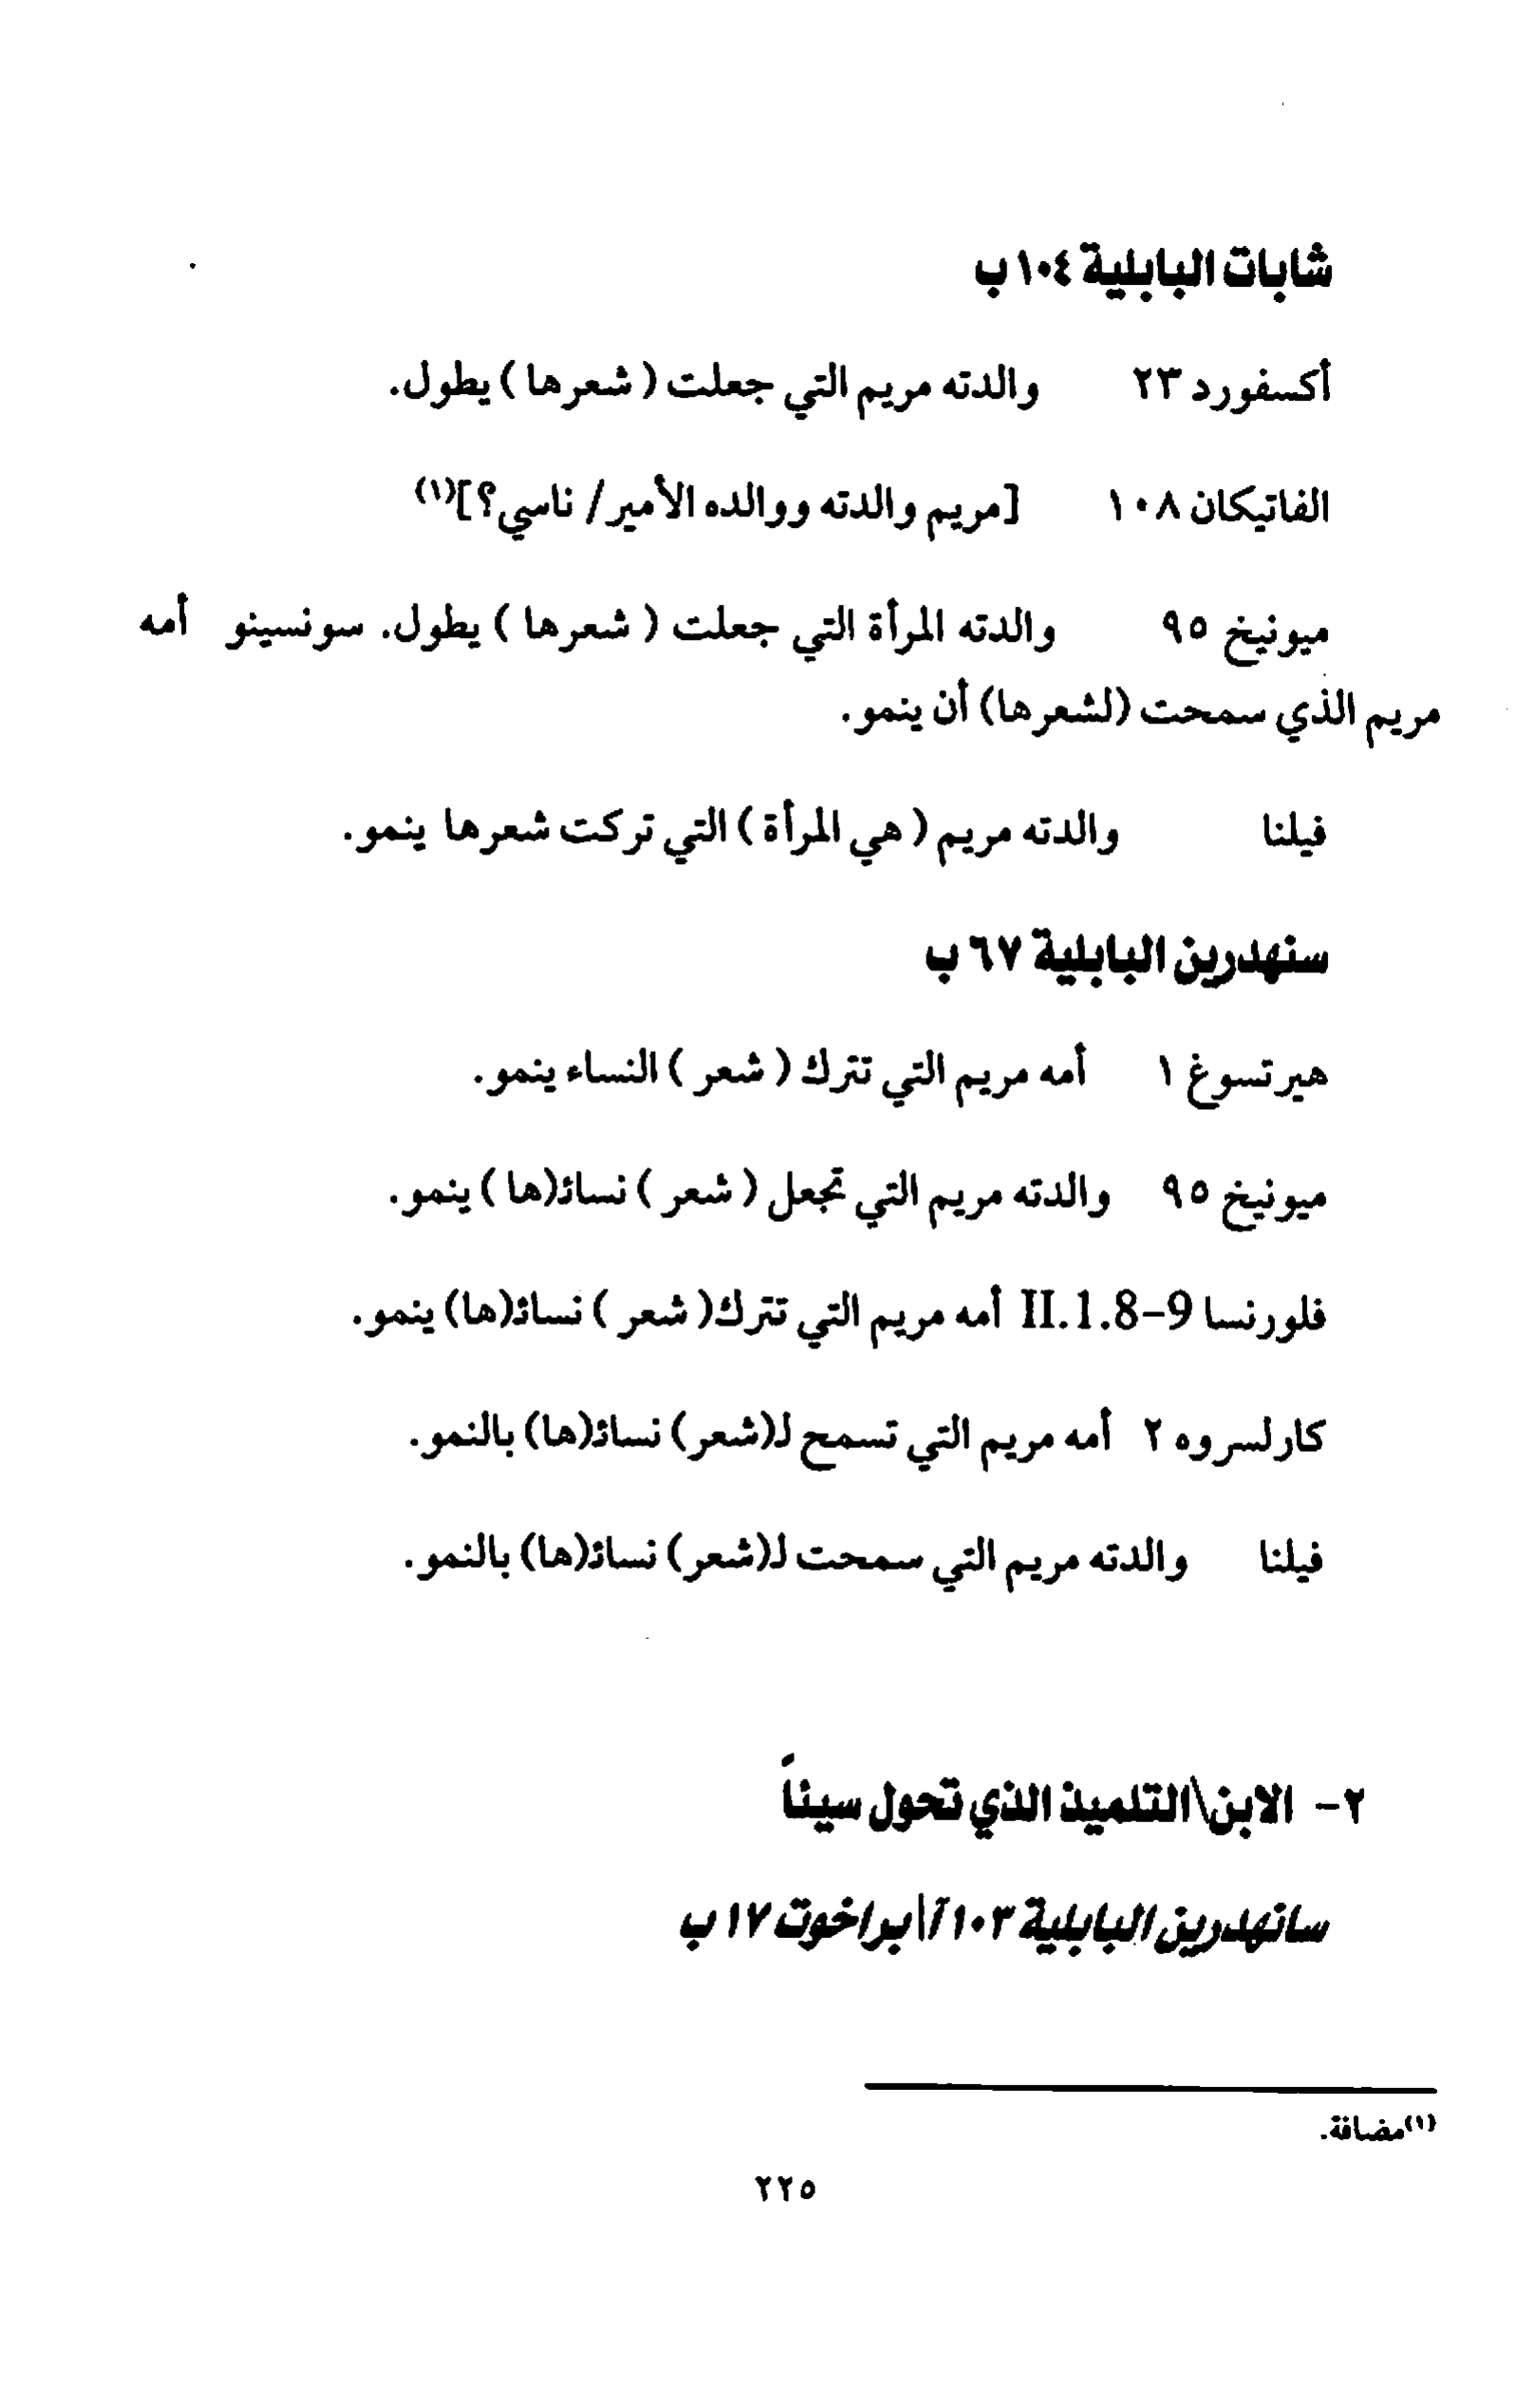 شابات البابلية ١٠٤ ب
أكسفورد ٢٣ والدته مريم التي جعلت ( شعرها ) يطول.
الفاتيكان ١٠٨ [مريم والدته ووالده الأمير/ ناسي؟](١)
ميونيخ ٩٥ والدته المرأة التي جعلت ( شعرها ) يطول. سونسينو أمه
مريم الذي سمحت (لشعرها) أن ينمو.
فيلنا والدته مريم ( هي المرأة ) التي تركت شعرها ينمو.
سنهدرين البابلية ٦٧ ب
هيرتسوغ ١ أمه مريم التي تترك ( شعر ) النساء ينمو.
ميونيخ ٩٥ والدته مريم التي تجعل ( شعر ) نسائ(ها ) ينمو.
فلورنسا II.1.8-9 أمه مريم التي تترك( شعر ) نسائ(ها) ينمو.
كارلسروه ٢ أمه مريم التي تسمح لـ(شعر) نسائ(ها) بالنمو.
فيلنا والدته مريم التي سمحت لـ(شعر) نسائ(ها) بالنمو.
٢- الابن\التلميذ الذي تحول سيئاً
سانهدرين البابلية ١٠٣ آ\ براخوت ١٧ ب
(١)مضافة.
٢٢٥